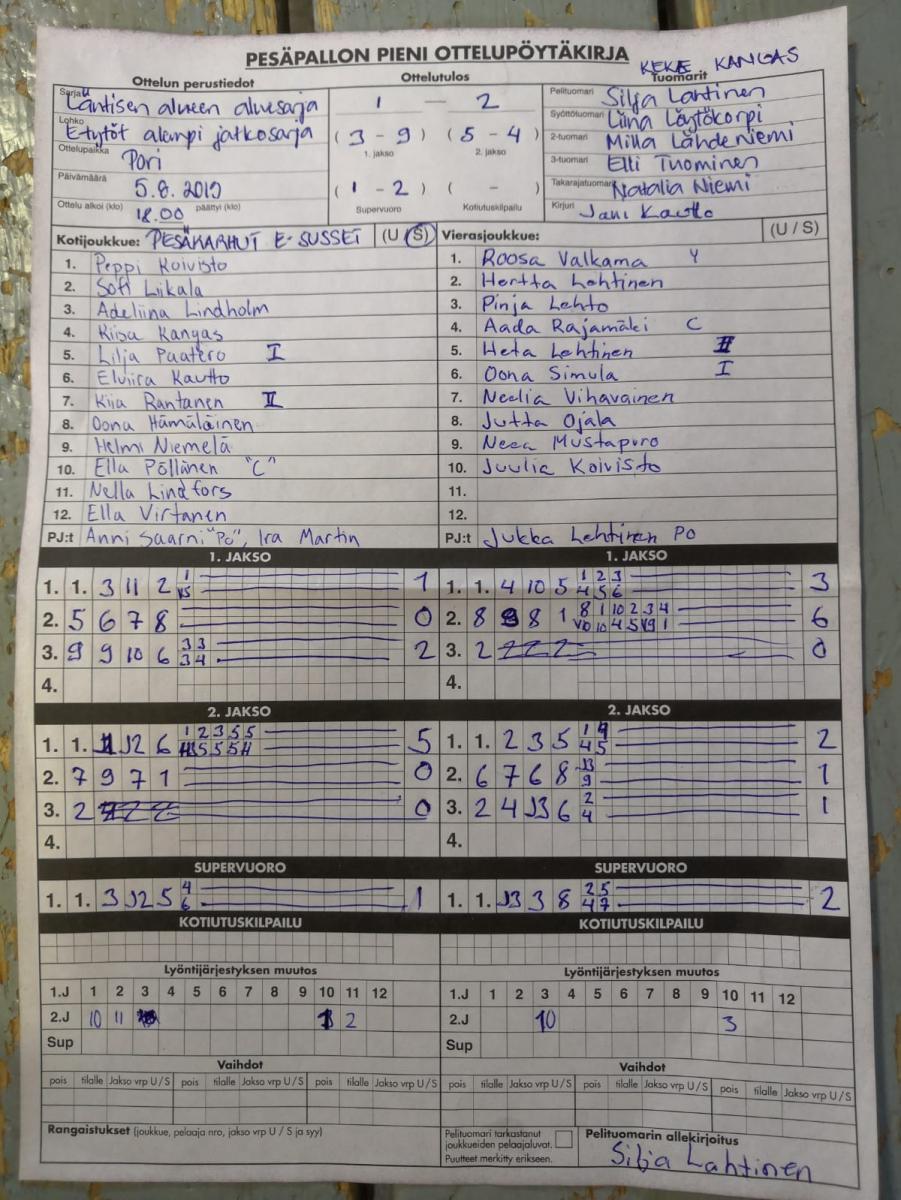 PESÄPALLON PIENI OTTELUPÖYTÄKIRJA
KEKE KANGAS
Ottelun perustiedot
Ottelutulos
Tuomarit
Sarja Läntisen alueen aluesarja
Lohko E-tytöt alempi jatkosarja
Ottelupaikka Pori
Päivämäärä 5.8.2019
Ottelu alkoi (klo) 18.00 päättyi (klo)
1 — 2
(3 - 9) (5 - 4)
1. jakso 2. jakso
(1 - 2) ( - )
Supervuoro Kotiutuskilpailu
Pelituomari Silja Lahtinen
Syöttötuomari Liina Löytökorpi
2-tuomari Milla Lähdeniemi
3-tuomari Elli Tuominen
Takarajatuomari Natalia Niemi
Kirjuri Jani Kautto
Kotijoukkue: PESÄKARHUT E-SUSSET (U / S)
1. Peppi Koivisto
2. Sofi Liikala
3. Adeliina Lindholm
4. Kiisa Kangas
5. Lilja Paatero I
6. Elviira Kautto
7. Kiia Rantanen II
8. Oona Hämäläinen
9. Helmi Niemelä
10. Ella Pöllänen "C"
11. Nella Lindfors
12. Ella Virtanen
PJ:t Anni Saarni "Po", Ira Martin
Vierasjoukkue: (U / S)
1. Roosa Valkama Y
2. Hertta Lehtinen
3. Pinja Lehto
4. Aada Rajamäki C
5. Heta Lehtinen II
6. Oona Simula I
7. Neelia Vihavainen
8. Jutta Ojala
9. Neea Mustapuro
10. Juulia Koivisto
11.
12.
PJ:t Jukka Lehtinen PO
1. JAKSO
1. 1. 3 11 2 1
V5 1
2. 5 6 7 8 0
3. 9 9 10 6 3 3
3 4 2
4.
1. JAKSO
1. 1. 4 10 5 1 2 3
4 5 6 3
2. 8 8 1 8 1 10 2 3 4
V10 10 4 5 V9 1 6
3. 2 0
4.
2. JAKSO
1. 1. J12 6 1 2 3 5 5
5 5 5 5
2. 7 9 7 1 0
3. 2 0
4.
2. JAKSO
1. 1. 2 3 5 1 4
4 5 2
2. 6 7 6 8 J3
9 1
3. 2 4 J3 6 2
4 1
4.
SUPERVUORO
1. 1. 3 J2 5 4
6 1
SUPERVUORO
1. 1. J3 3 8 2 5
4 7 2
KOTIUTUSKILPAILU
Lyöntijärjestyksen muutos
1.J 1 2 3 4 5 6 7 8 9 10 11 12
2.J 10 11 2
Sup
Vaihdot
pois tilalle Jakso vrp U / S pois tilalle Jakso vrp U / S pois tilalle Jakso vrp U / S
Rangaistukset (joukkue, pelaaja nro, jakso vrp U / S ja syy)
KOTIUTUSKILPAILU
Lyöntijärjestyksen muutos
1.J 1 2 3 4 5 6 7 8 9 10 11 12
2.J 10 3
Sup
Vaihdot
pois tilalle Jakso vrp U / S pois tilalle Jakso vrp U / S pois tilalle Jakso vrp U / S
Pelituomari tarkastanut
joukkueiden pelaajaluvat.
Puutteet merkitty erikseen.
Pelituomarin allekirjoitus
Silja Lahtinen